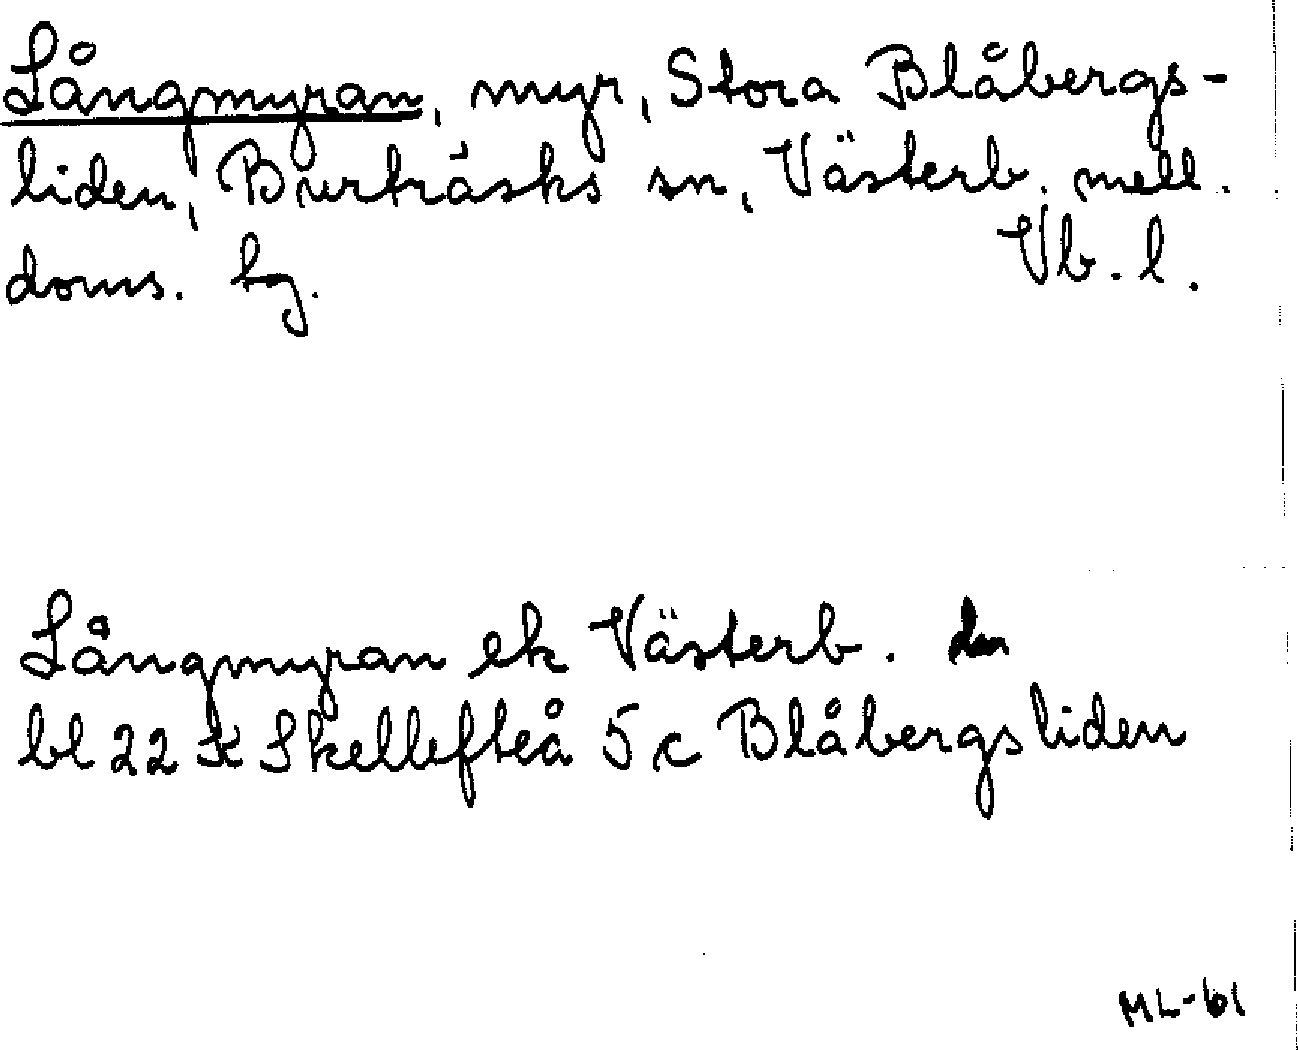 Långmyran, myr, Stora Blåbergs-
liden, Burträsks sn, Västerb. mell.
doms. tg. Vb. l.
Långmyran ek Västerb.
bl 22 K Skellefteå 5 c Blåbergsliden
ML-61